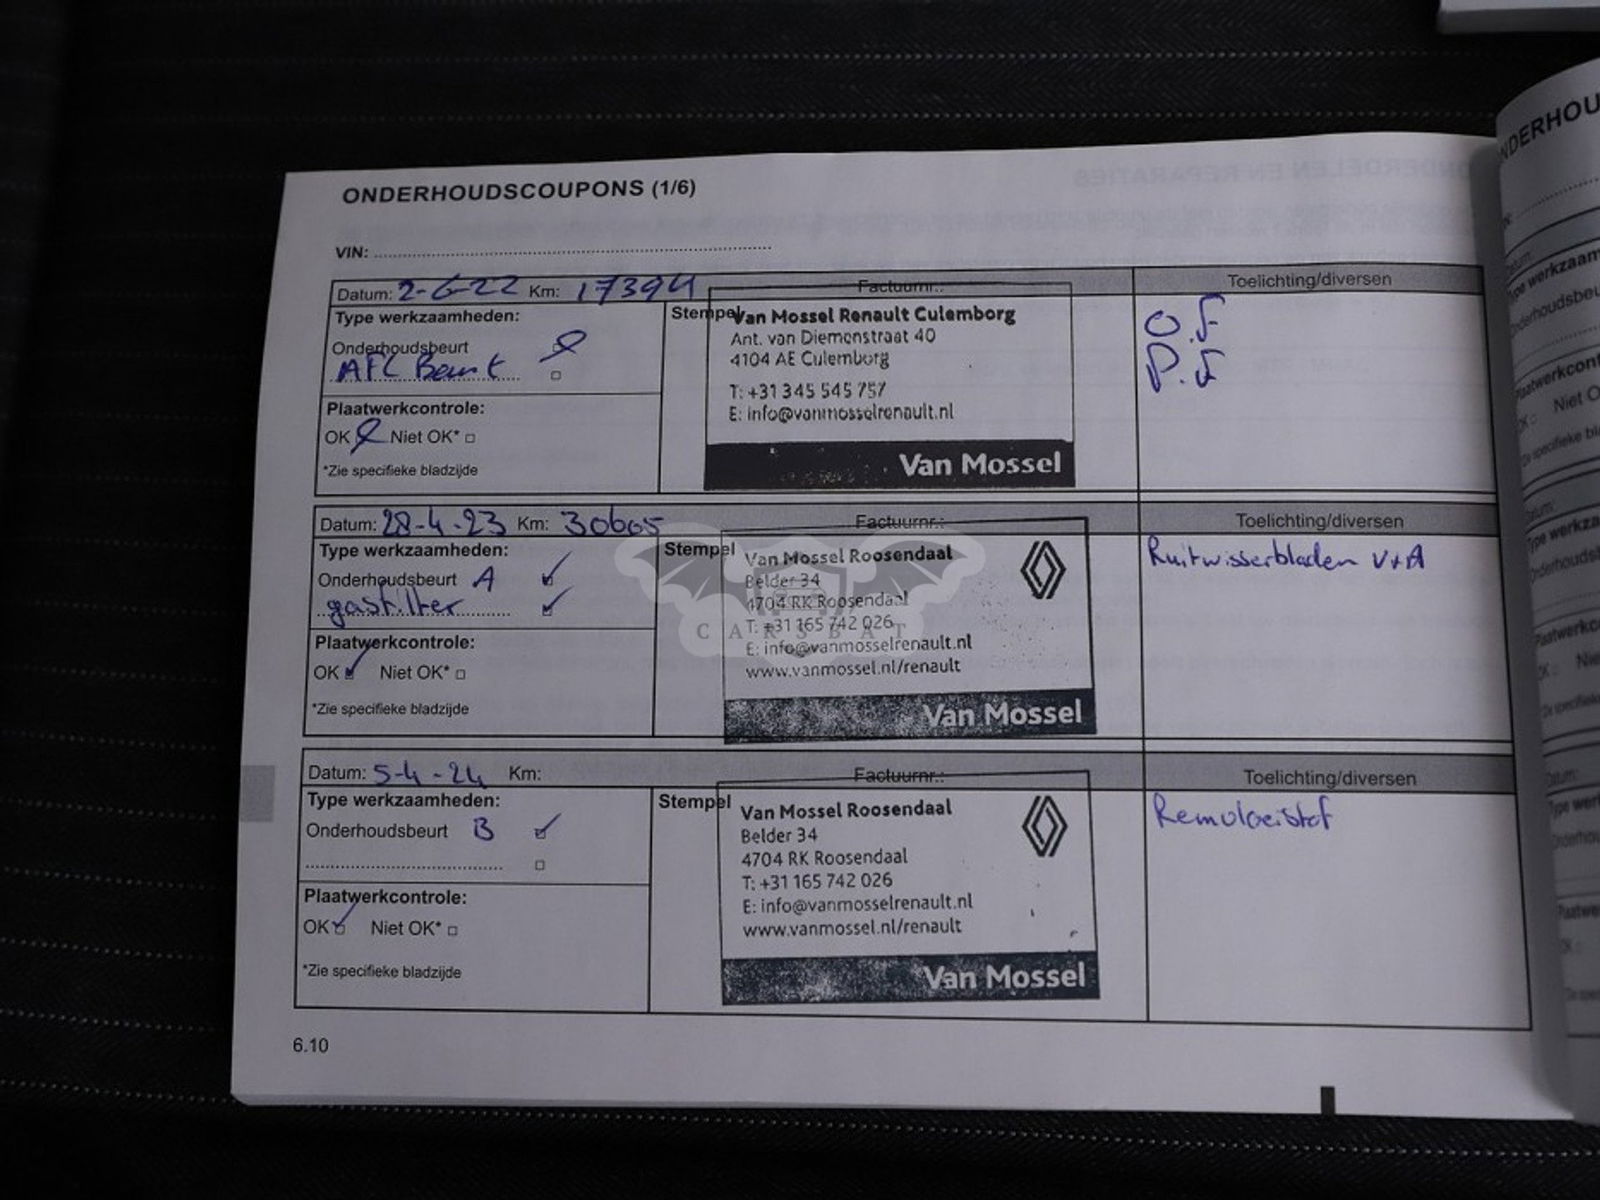 ONDERHOUDSCOUPONS (1/6)
VIN:
Datum: 2-6-22 Km: 17394 Factuurnr.: Toelichting/diversen
Type werkzaamheden:
Onderhoudsbeurt
AFL Beurt
Plaatwerkcontrole:
OK Niet OK*
*Zie specifieke bladzijde
Stempel
Van Mossel Renault Culemborg
Ant. van Diemenstraat 40
4104 AE Culemborg
T: +31 345 545 757
E: info@vanmosselrenault.nl
Van Mossel
O.F
P.F
Datum: 28-4-23 Km: 30605 Factuurnr.: Toelichting/diversen
Type werkzaamheden:
Onderhoudsbeurt A
gasfilter
Plaatwerkcontrole:
OK Niet OK*
*Zie specifieke bladzijde
Stempel
Van Mossel Roosendaal
Belder 34
4704 RK Roosendaal
T: +31 165 742 026
E: info@vanmosselrenault.nl
www.vanmossel.nl/renault
Van Mossel
CARSBAT
Ruitwisserbladen V+A
Datum: 5-4-24 Km: Factuurnr.: Toelichting/diversen
Type werkzaamheden:
Onderhoudsbeurt B
Plaatwerkcontrole:
OK Niet OK*
*Zie specifieke bladzijde
Stempel
Van Mossel Roosendaal
Belder 34
4704 RK Roosendaal
T: +31 165 742 026
E: info@vanmosselrenault.nl
www.vanmossel.nl/renault
Van Mossel
Remvloeistof
6.10